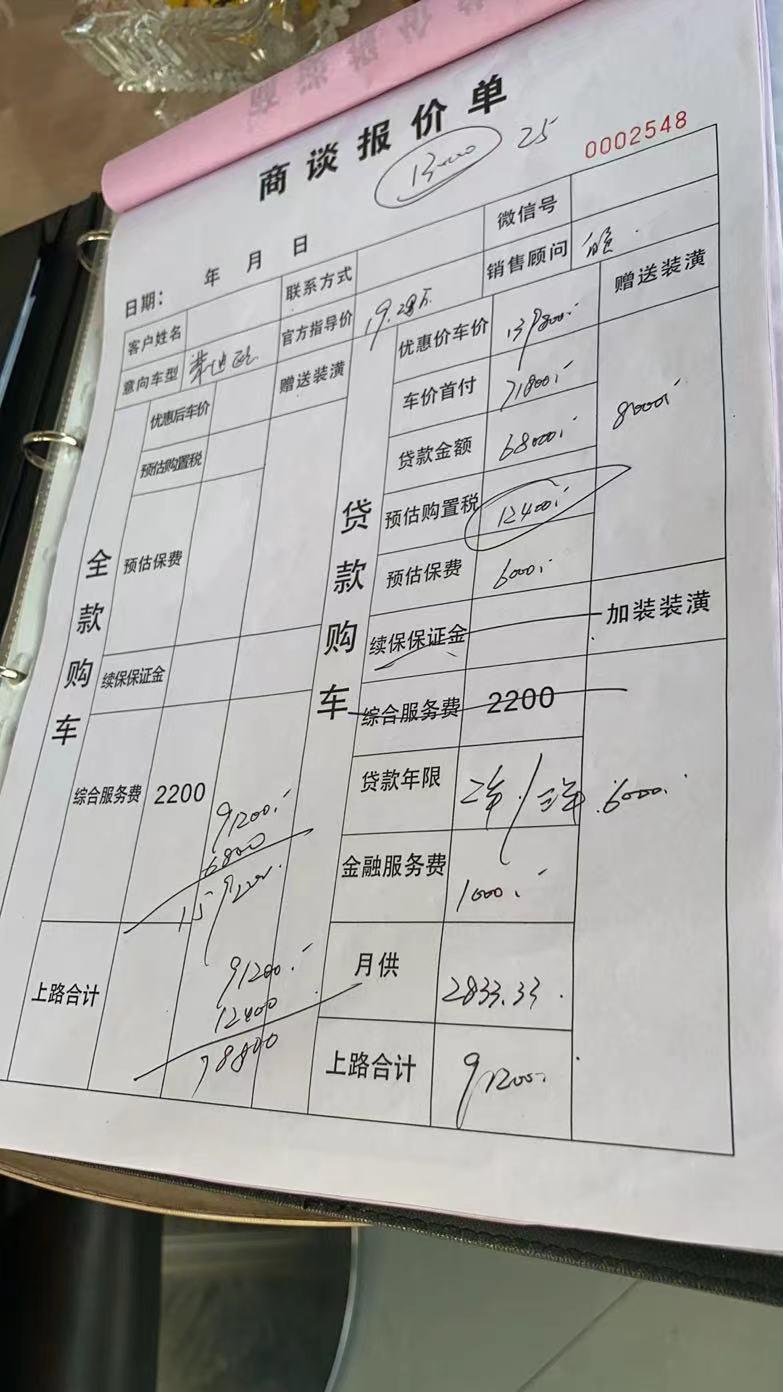 商谈报价单
13000 25
0002548
日期： 年 月 日
客户姓名 联系方式 微信号
意向车型 蒙迪欧 官方指导价 19.28万 销售顾问
全款购车
优惠后车价 赠送装潢
预估购置税
预估保费
续保保证金
综合服务费 2200
上路合计
91200.-
6800
159200.-
91200.-
12400
78800
贷款购车
优惠价车价 139800.- 赠送装潢
车价首付 71800.- 8000.-
贷款金额 68000.-
预估购置税 12400.-
预估保费 6000.-
续保保证金 加装装潢
综合服务费 2200
贷款年限 2年/三年 6000.-
金融服务费 1000.-
月供 2833.33.
上路合计 91200.-